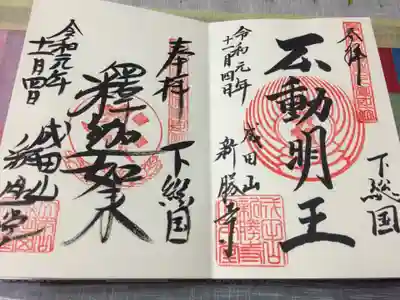 奉拝
下総国
不動明王
成田山
新勝寺
令和元年
十二月四日
奉拝
下総国
釋迦如来
成田山
釈迦堂
令和元年
十二月四日